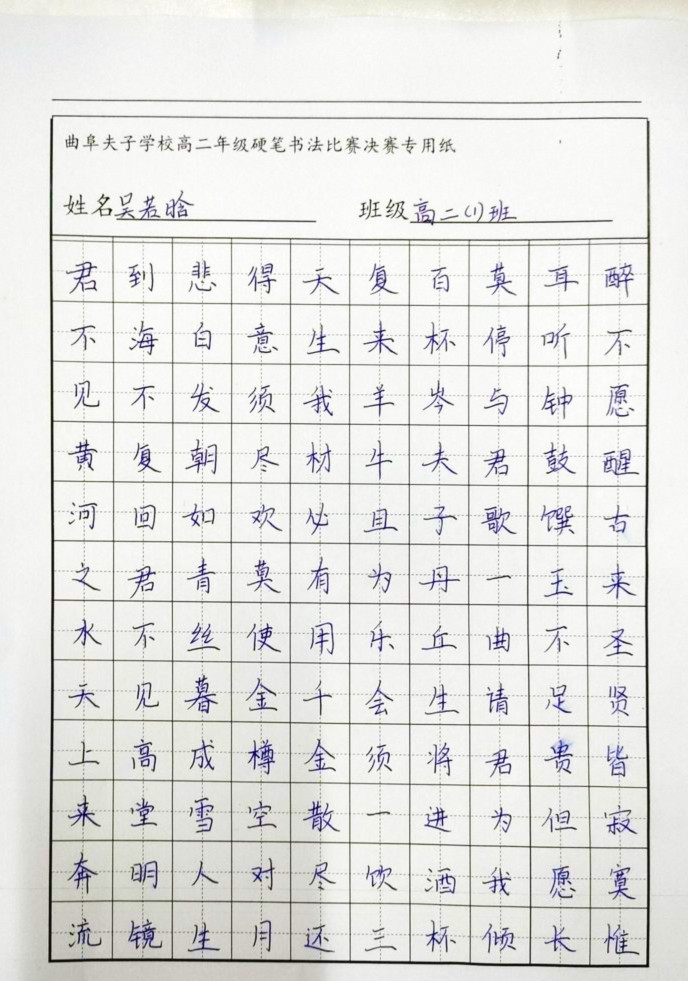 曲阜夫子学校高二年级硬笔书法比赛决赛专用纸
姓名吴若晗 班级高二(1)班
君不见黄河之水天上来奔流
到海不复回君不见高堂明镜
悲白发朝如青丝暮成雪人生
得意须尽欢莫使金樽空对月
天生我材必有用千金散尽还
复来羊牛且为乐会须一饮三
百杯岑夫子丹丘生将进酒杯
莫停与君歌一曲请君为我倾
耳听钟鼓馔玉不足贵但愿长
醉不愿醒古来圣贤皆寂寞惟